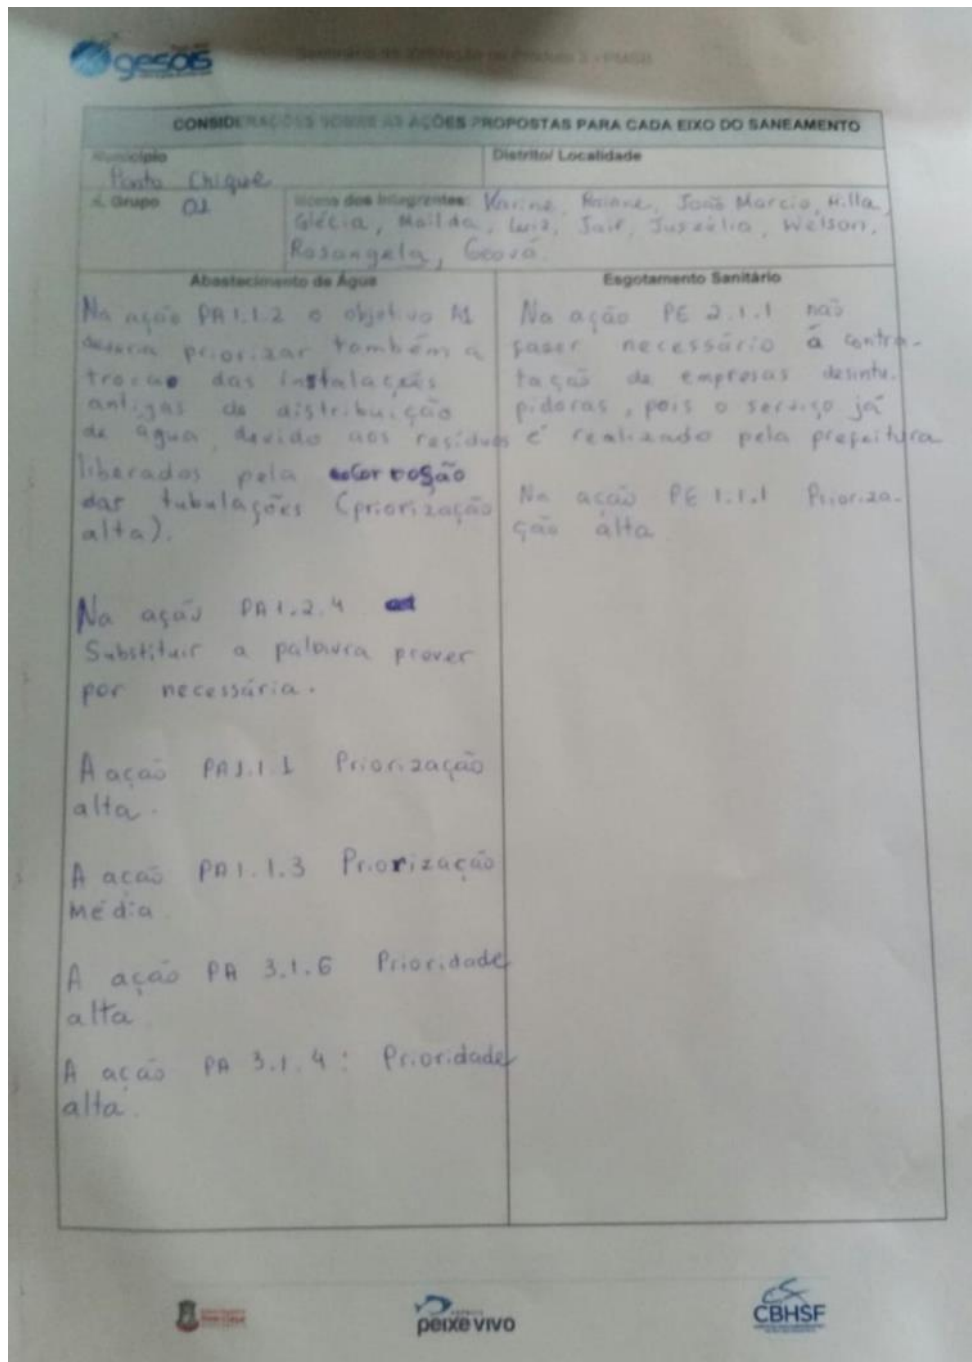 gesois
Seminário de Validação do Produto 3 - PMSB
CONSIDERAÇÕES SOBRE AS AÇÕES PROPOSTAS PARA CADA EIXO DO SANEAMENTO
Município
Distrito/ Localidade
Ponto Chique
Grupo 01
Nome dos Integrantes: Karine, Raiane, João Marcio, Hilla,
Glécia, Mailda, Luiz, Jair, Juscélio, Welson,
Rosangela, Geová.
Abastecimento de Água
Na ação PA1.1.2 o objetivo A1
deveria priorizar também a
troca das instalações
antigas de distribuição
de água, devido aos resíduos
liberados pela corrosão
das tubulações (priorização
alta).
Na ação PA1.2.4
Substituir a palavra prover
por necessária.
A ação PA1.1.1 Priorização
alta.
A ação PA1.1.3 Priorização
Média.
A ação PA 3.1.6 Prioridade
alta
A ação PA 3.1.4: Prioridade
alta.
Esgotamento Sanitário
Na ação PE 2.1.1 não
fazer necessário á contra-
tação de empresas desintu-
pidoras, pois o serviço já
é realizado pela prefeitura
Na ação PE 1.1.1 Prioriza-
ção alta
peixe vivo
CBHSF